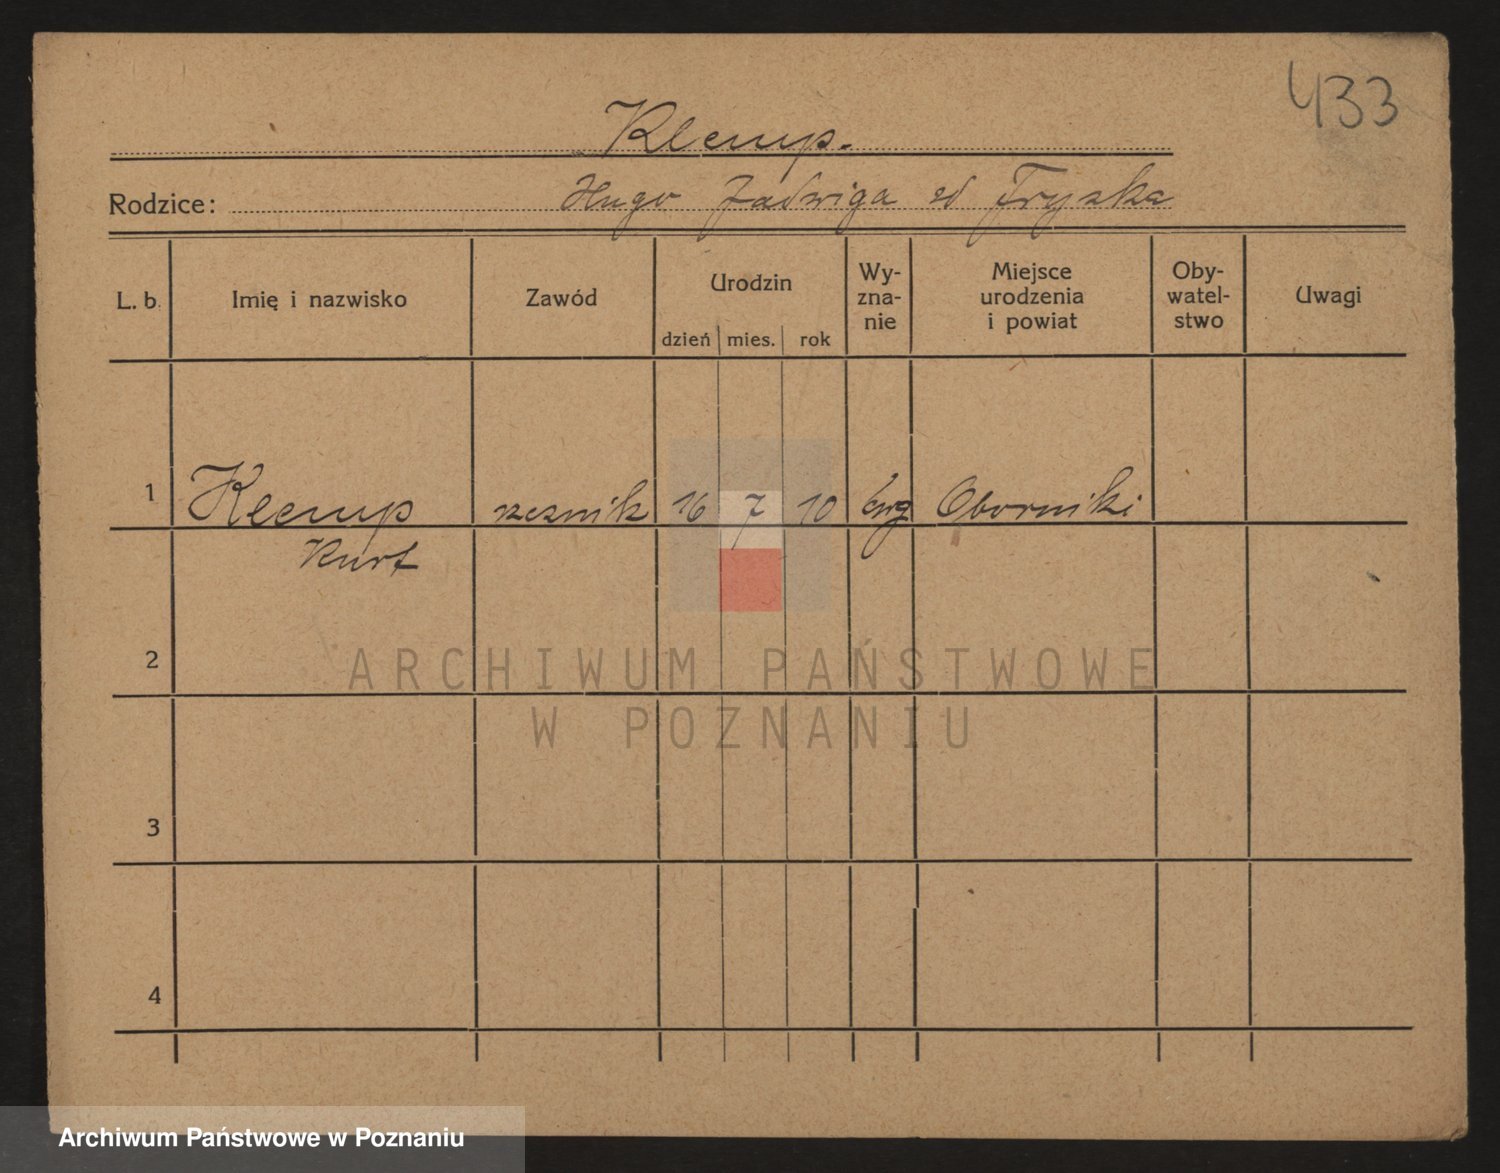 433
Klemp.
Rodzice: Hugo Jadwiga zd Fryska
L. b. Imię i nazwisko Zawód Urodzin dzień mies. rok Wy-zna-nie Miejsce urodzenia i powiat Oby-watel-stwo Uwagi
1 Klemp rzeznik 16 7 10 ewg Oborniki
Kurt
2
ARCHIWUM PAŃSTWOWE
W POZNANIU
3
4
Archiwum Państwowe w Poznaniu